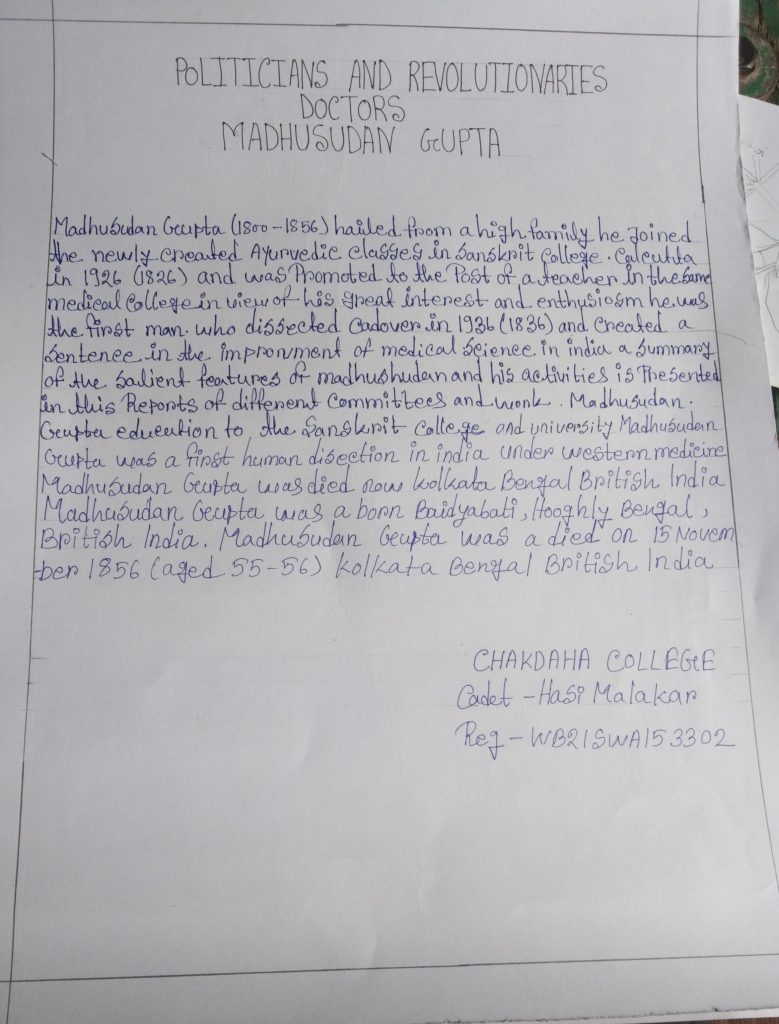 POLITICIANS AND REVOLUTIONARIES
DOCTORS
MADHUSUDAN GUPTA
Madhusudan Gupta (1800-1856) hailed from a high family he Joined
the newly created Ayurvedic classes in Sanskrit College. Calcutta
in 1926 (1826) and was Promoted to the Post of a teacher in the same
medical College in view of his great interest and enthusiosm he was
the first man. who dissected Cadover in 1936 (1836) and created a
Sentence in the impronment of medical Science in india a Summary
of the Salient features of madhushudan and his activities is Presented
in this Reports of different Committees and work. Madhusudan.
Gupta education to the Sanskrit College and university Madhusudan
Gupta was a first human disection in india under western medicine
Madhusudan Gupta was died now kolkata Bengal British India
Madhusudan Gupta was a born Baidyabati, Hooghly Bengal,
British India. Madhusudan Gupta was a died on 15 Novem
-ber 1856 (aged 55-56) kolkata Bengal British India
CHAKDAHA COLLEGE
Cadet - Hasi Malakar
Reg - WB21SWA153302